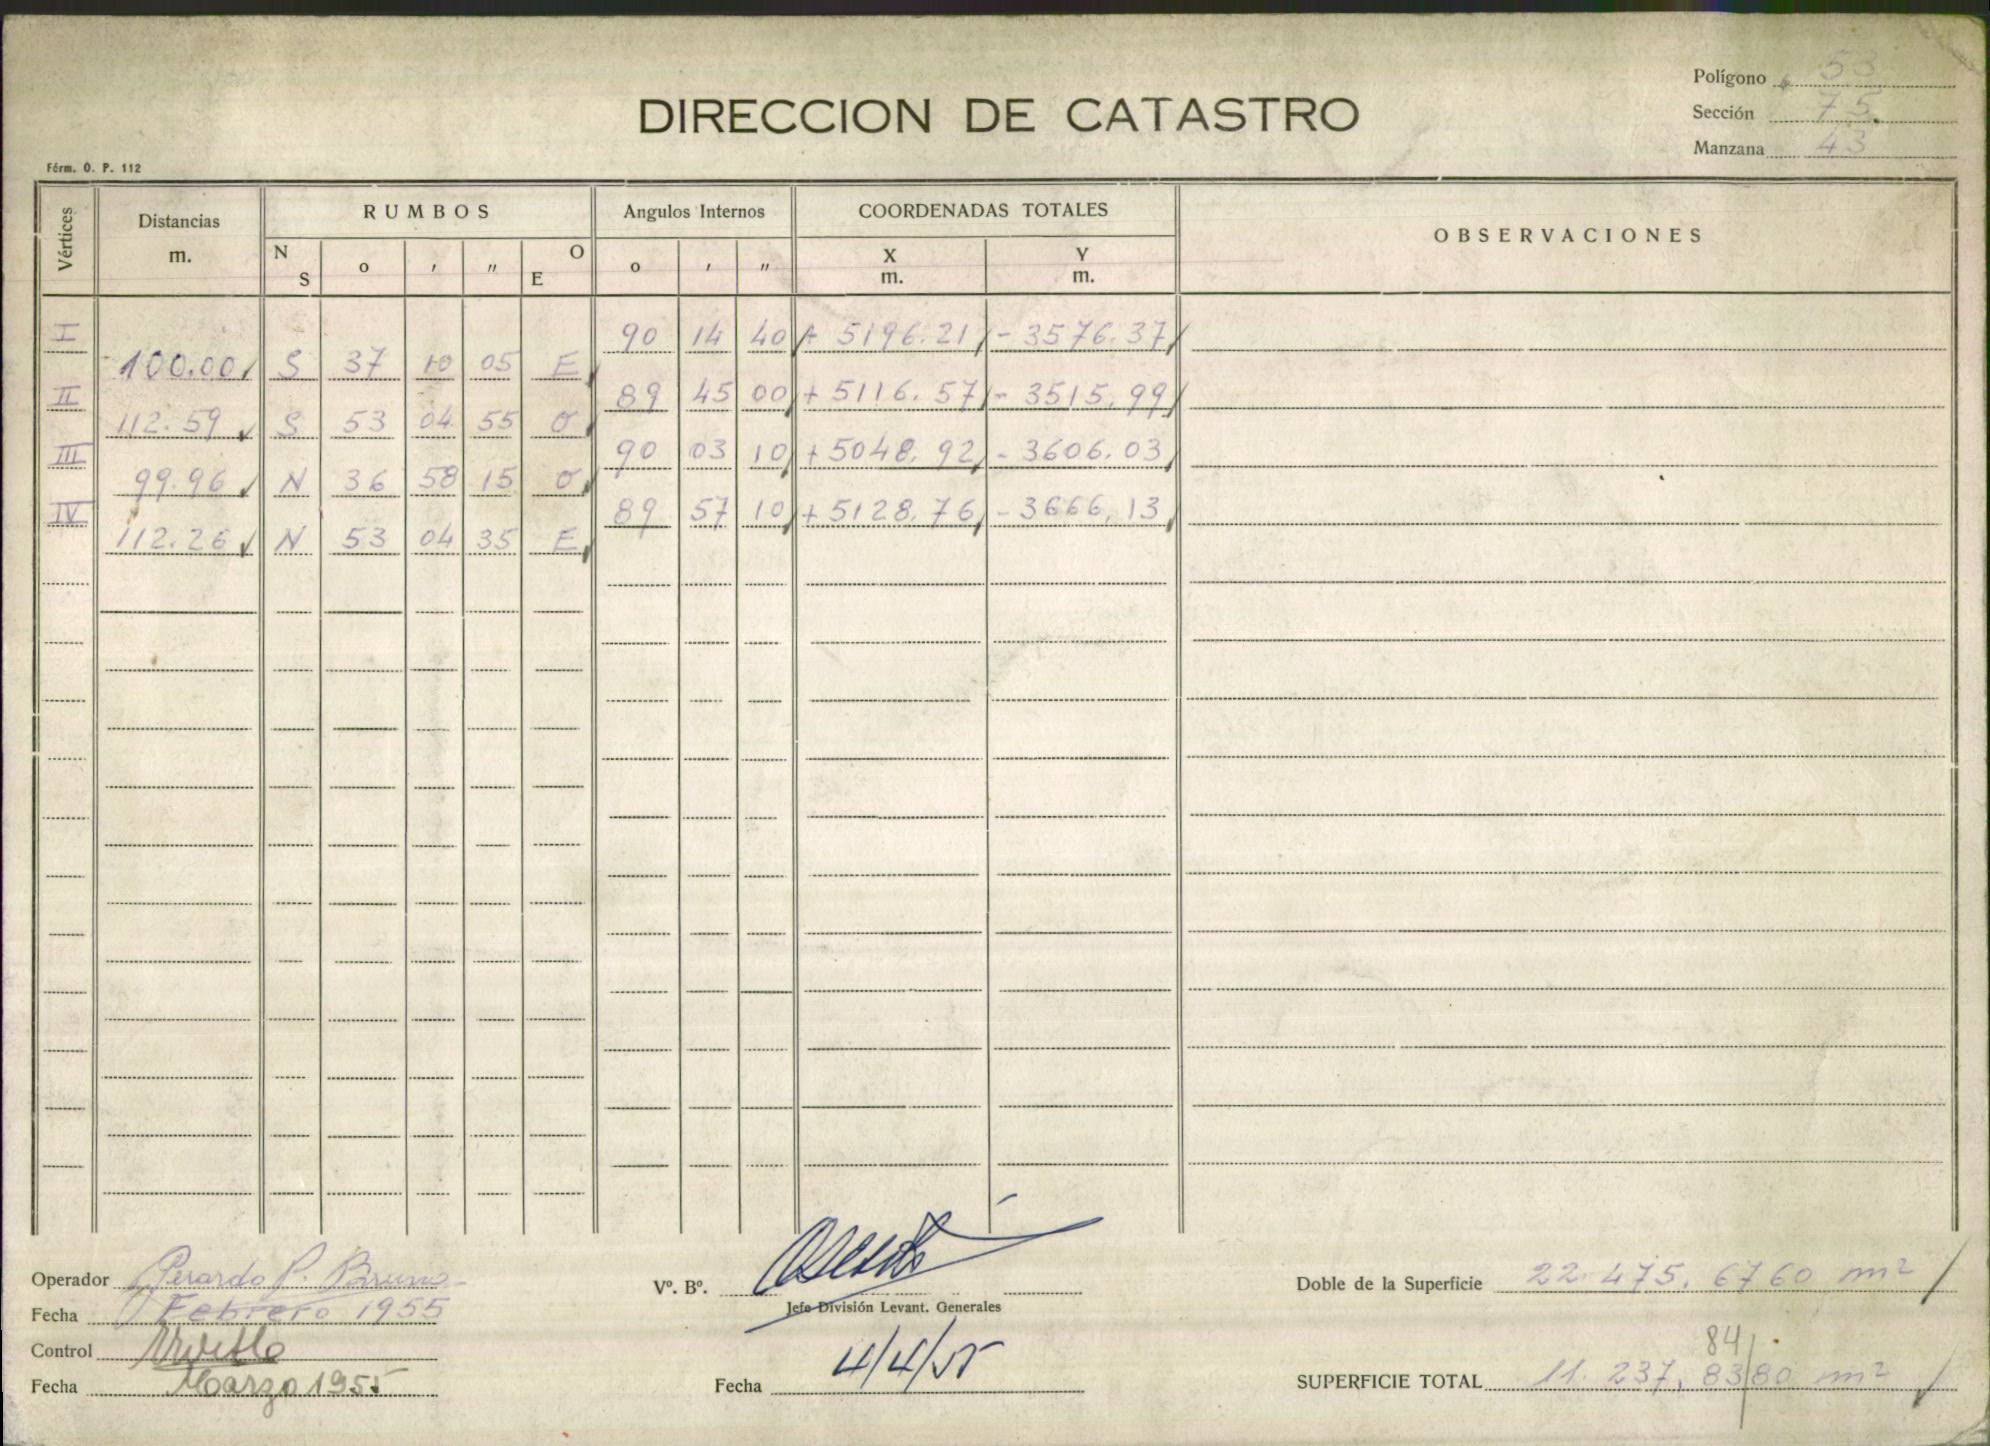 Polígono 53
DIRECCION DE CATASTRO
Sección 75.
Manzana 43
Fórm. O. P. 112
Vértices Distancias m. RUMBOS Angulos Internos COORDENADAS TOTALES OBSERVACIONES
N S o ' " O E o ' " X m. Y m.
I 90 14 40 + 5196.21 - 3576.37
100.00 S 37 10 05 E
II 89 45 00 + 5116.57 - 3515.99
112.59 S 53 04 55 O
III 90 03 10 + 5048.92 - 3606.03
99.96 N 36 58 15 O
IV 89 57 10 + 5128.76 - 3666.13
112.26 N 53 04 35 E
Operador P. Bruno
Fecha Febrero 1955
Control
Fecha Marzo 1955
Vº. Bº.
Jefe División Levant. Generales
Fecha 4/4/55
Doble de la Superficie 22.475,6760 m²
84
SUPERFICIE TOTAL 11.237,8380 m²